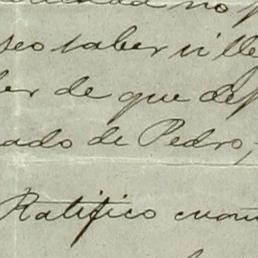 no
seo saber si lle
de que def
ado de Pedro,
Ratifico cuan